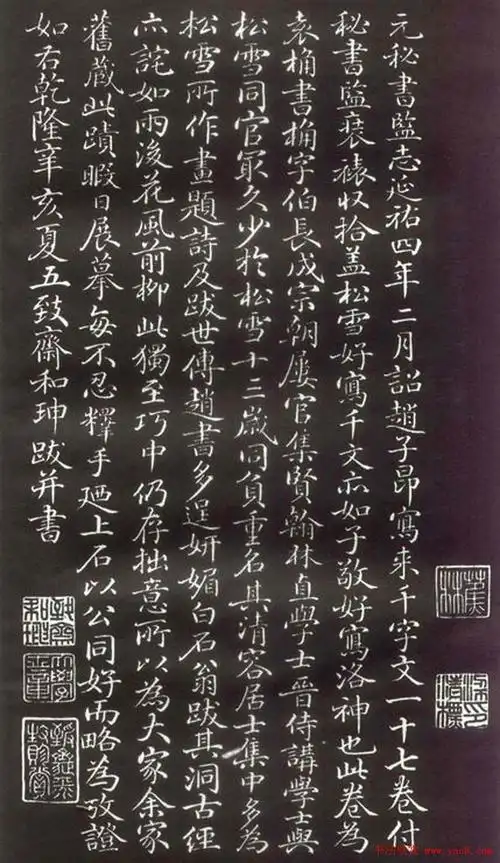 元秘書監志延祐四年二月詔趙子昂寫来千字文一十七卷付
秘書監裒裱収拾盖松雪好寫千文亦如子敬好寫洛神也此卷為
袁桷書桷字伯長成宗朝屢官集賢翰林直學士晋侍講學士與
松雪同官最久少於松雪十二歲同負重名其清容居士集中多為
松雪所作畫題詩及跋世傳趙書多逞妍媚白石翁跋其洞古經
亦詫如雨後花風前柳此獨至巧中仍存拙意所以為大家余家
舊蔵此蹟暇日展摹每不忍釋手廼上石以公同好而略為攷證
如右乾隆辛亥夏五致齋和珅跋并書
蕉林